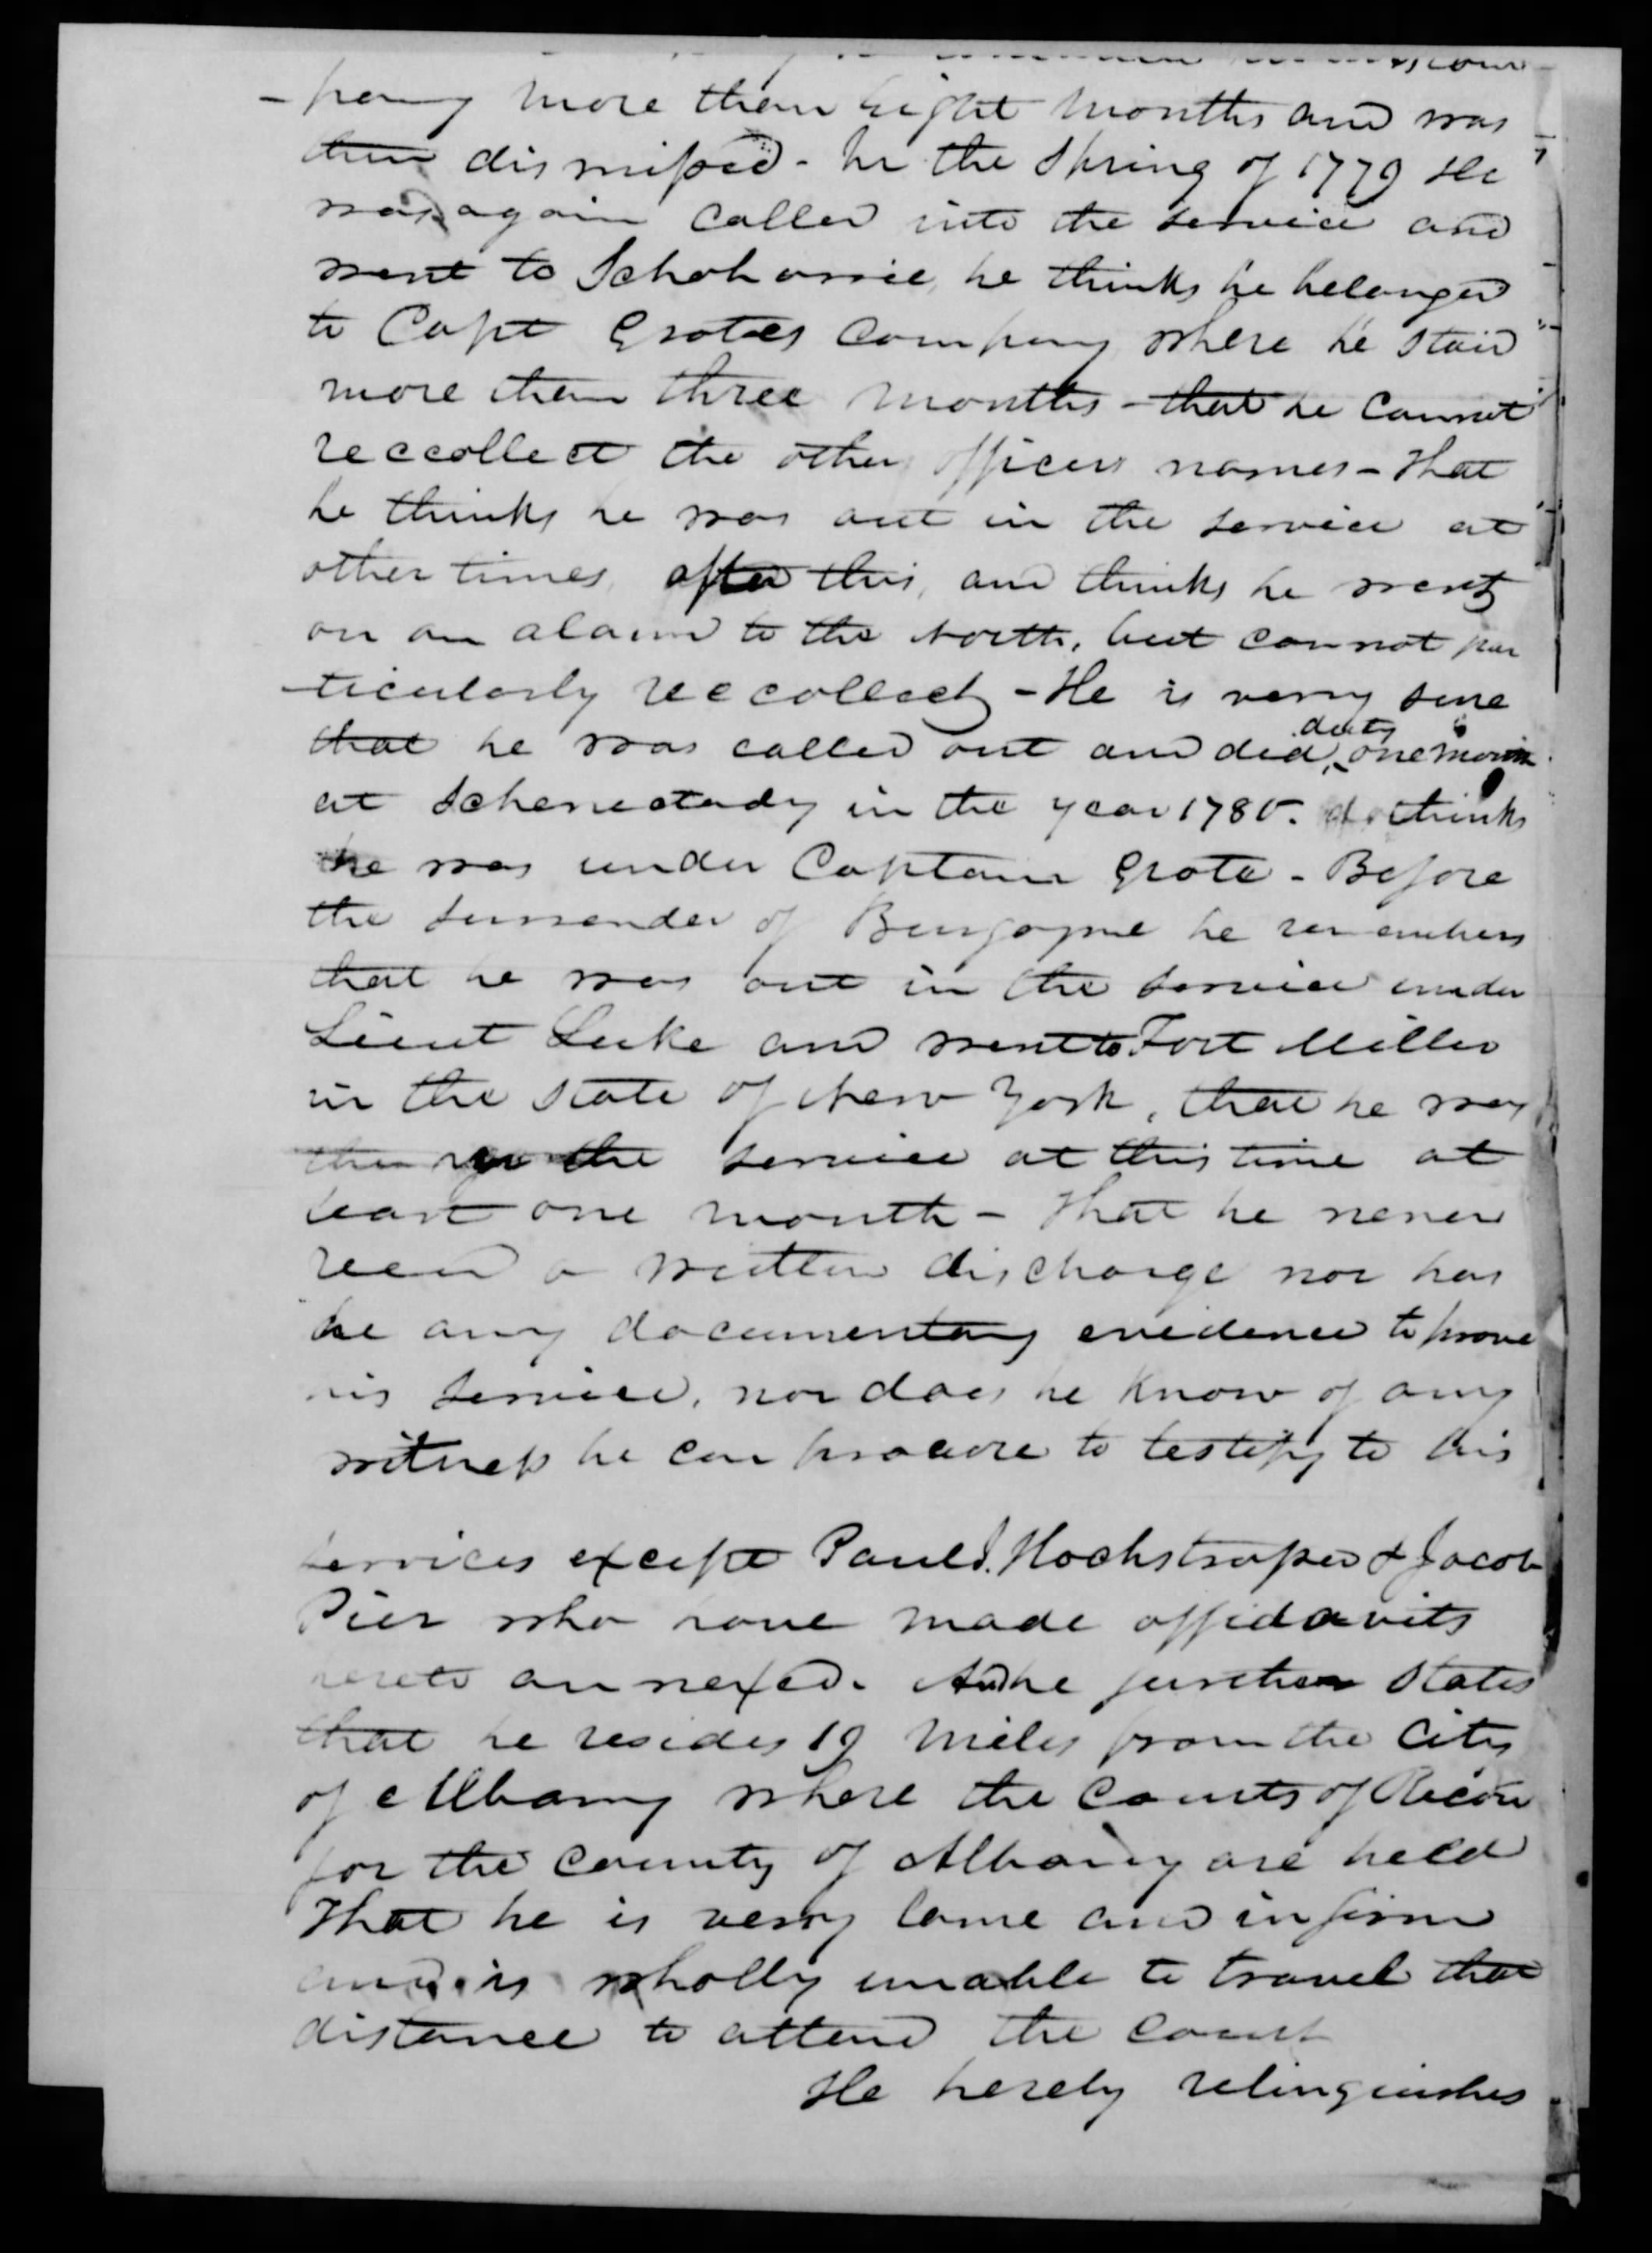 -pany more than eight months and was
then dismissed - In the Spring of 1779 He
was again called into the service and
went to Schoharrie, he thinks he belonged
to Capt Grotes Company where he staid
more than three months - that he cannot
reccollect the other officers names - That
he thinks he was out in the service at
other times, after this, and thinks he went
on an alarm to the North, but cannot par
-ticularly reccollect - He is verry sure
that he was called out and did duty one month
at Schenectady in the year 1780. thinks
he was under Captain Grote - Before
the surrender of Burgoyne he remembers
that he was out in the service under
Lieut Luke and went to Fort Miller
in the State of New York, that he was
the service at this time at
least one month - That he never
recd a written discharge nor has
he any documentary evidence to prove
his service, nor does he know of any
witness he can procure to testify to his
services except Paul J. Hochstrasser & Jacob
Pier who have made affidavits
hereto annexed. And he further States
that he resides 19 miles from the City
of Albany where the Courts of Record
for the County of Albany are held
That he is verry lame and infirm
and is wholly unable to travel that
distance to attend the Court
He hereby relinquishes